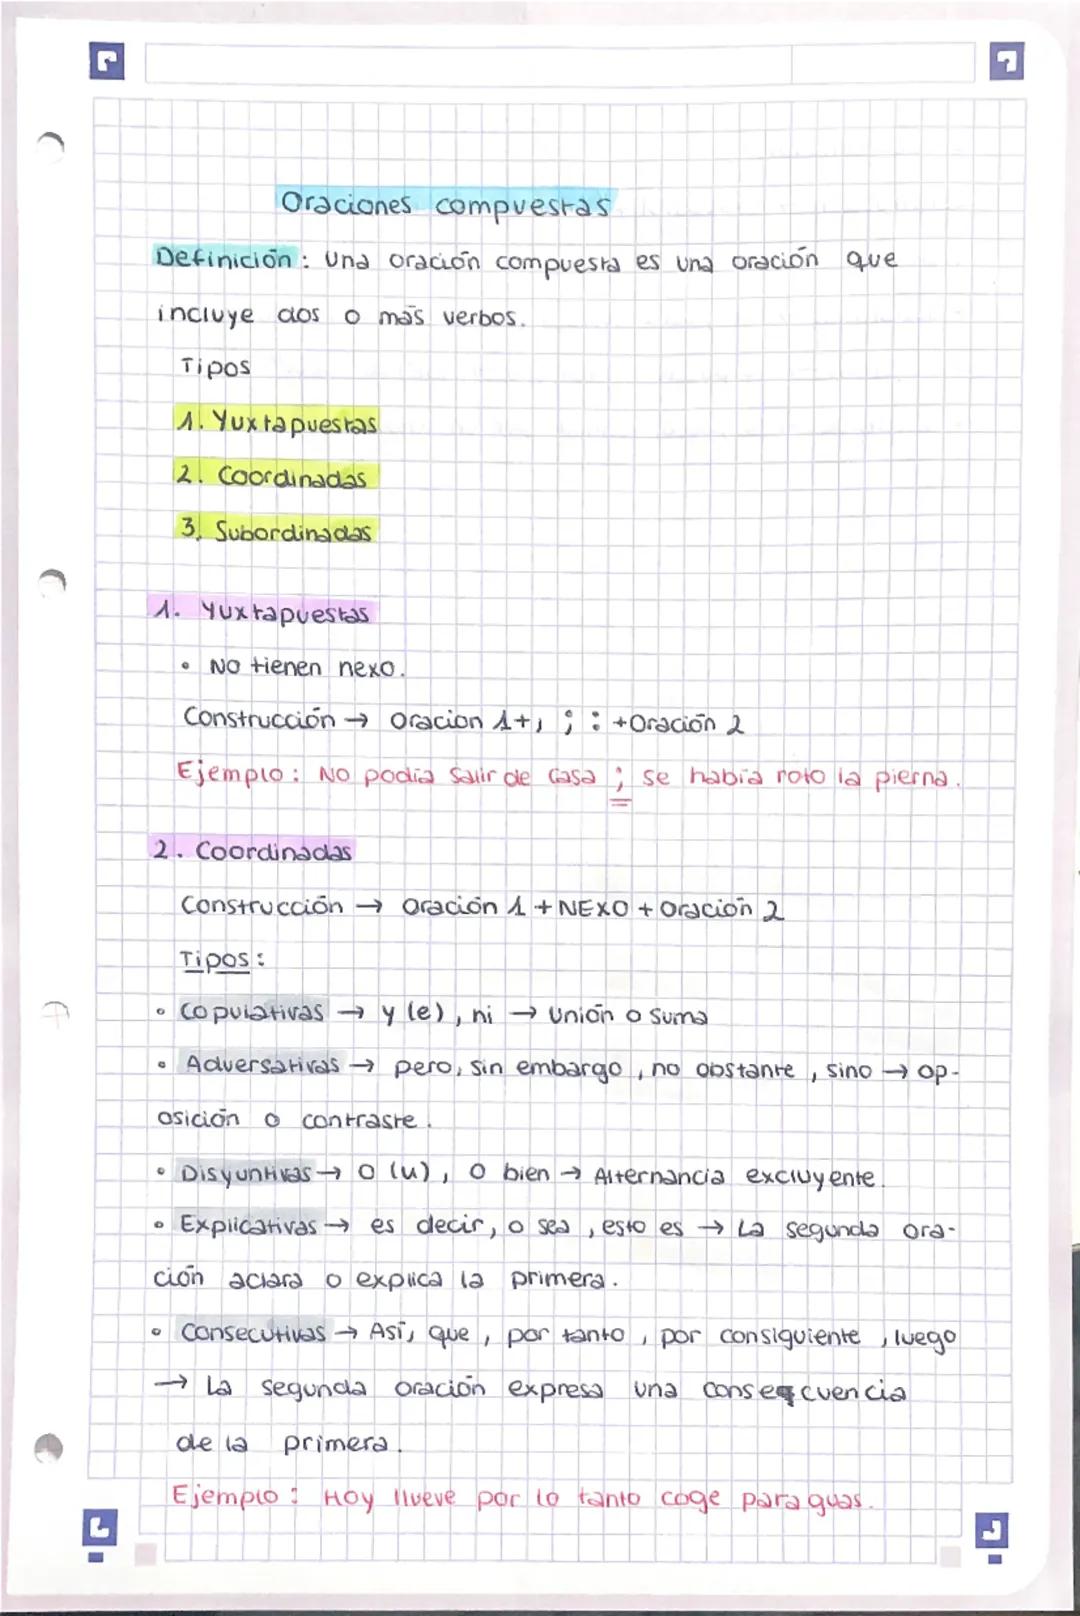 Oraciones compuestas
Definición: Una oración compuesta es una oración que
incluye dos o más verbos.
Tipos
1. Yuxtapuestas
2. Coordinadas
3. Subordinadas
1. Yuxtapuestas
• No tienen nexo.
Construcción → Oracion 1+, ; : +Oración 2
Ejemplo: No podía salir de casa ; se había roto la pierna.
2. Coordinadas
Construcción → Oración 1 + NEXO + Oración 2
Tipos:
• Copulativas → y (e), ni → Unión o suma
• Adversativas → pero, sin embargo, no obstante, sino → op-
osición o contraste.
• Disyuntivas → O (u), O bien → Alternancia excluyente.
• Explicativas → es decir, o sea, esto es → La segunda ora-
ción aclara o explica la primera.
• Consecutivas → Así, que, por tanto, por consiguiente, luego
→ La segunda oración expresa una consecuencia
de la primera.
Ejemplo: Hoy llueve por lo tanto coge paraguas.